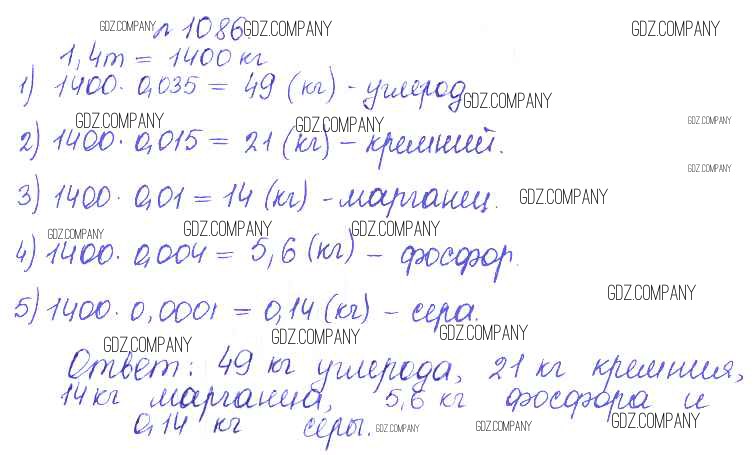 GDZ.COMPANY № 1086 GDZ.COMPANY GDZ.COMPANY
1,4т = 1400 кг
1) 1400 · 0,035 = 49 (кг) - углерод GDZ.COMPANY
GDZ.COMPANY GDZ.COMPANY GDZ.COMPANY
2) 1400 · 0,015 = 21 (кг) - кремний.
GDZ.COMPANY
3) 1400 · 0,01 = 14 (кг) - марганец. GDZ.COMPANY
GDZ.COMPANY GDZ.COMPANY GDZ.COMPANY
4) 1400 · 0,004 = 5,6 (кг) - фосфор.
GDZ.COMPANY
5) 1400 · 0,0001 = 0,14 (кг) - сера.
GDZ.COMPANY GDZ.COMPANY GDZ.COMPANY
Ответ: 49 кг углерода, 21 кг кремния,
14 кг марганца, 5,6 кг фосфора и
0,14 кг серы. GDZ.COMPANY GDZ.COMPANY GDZ.COMPANY